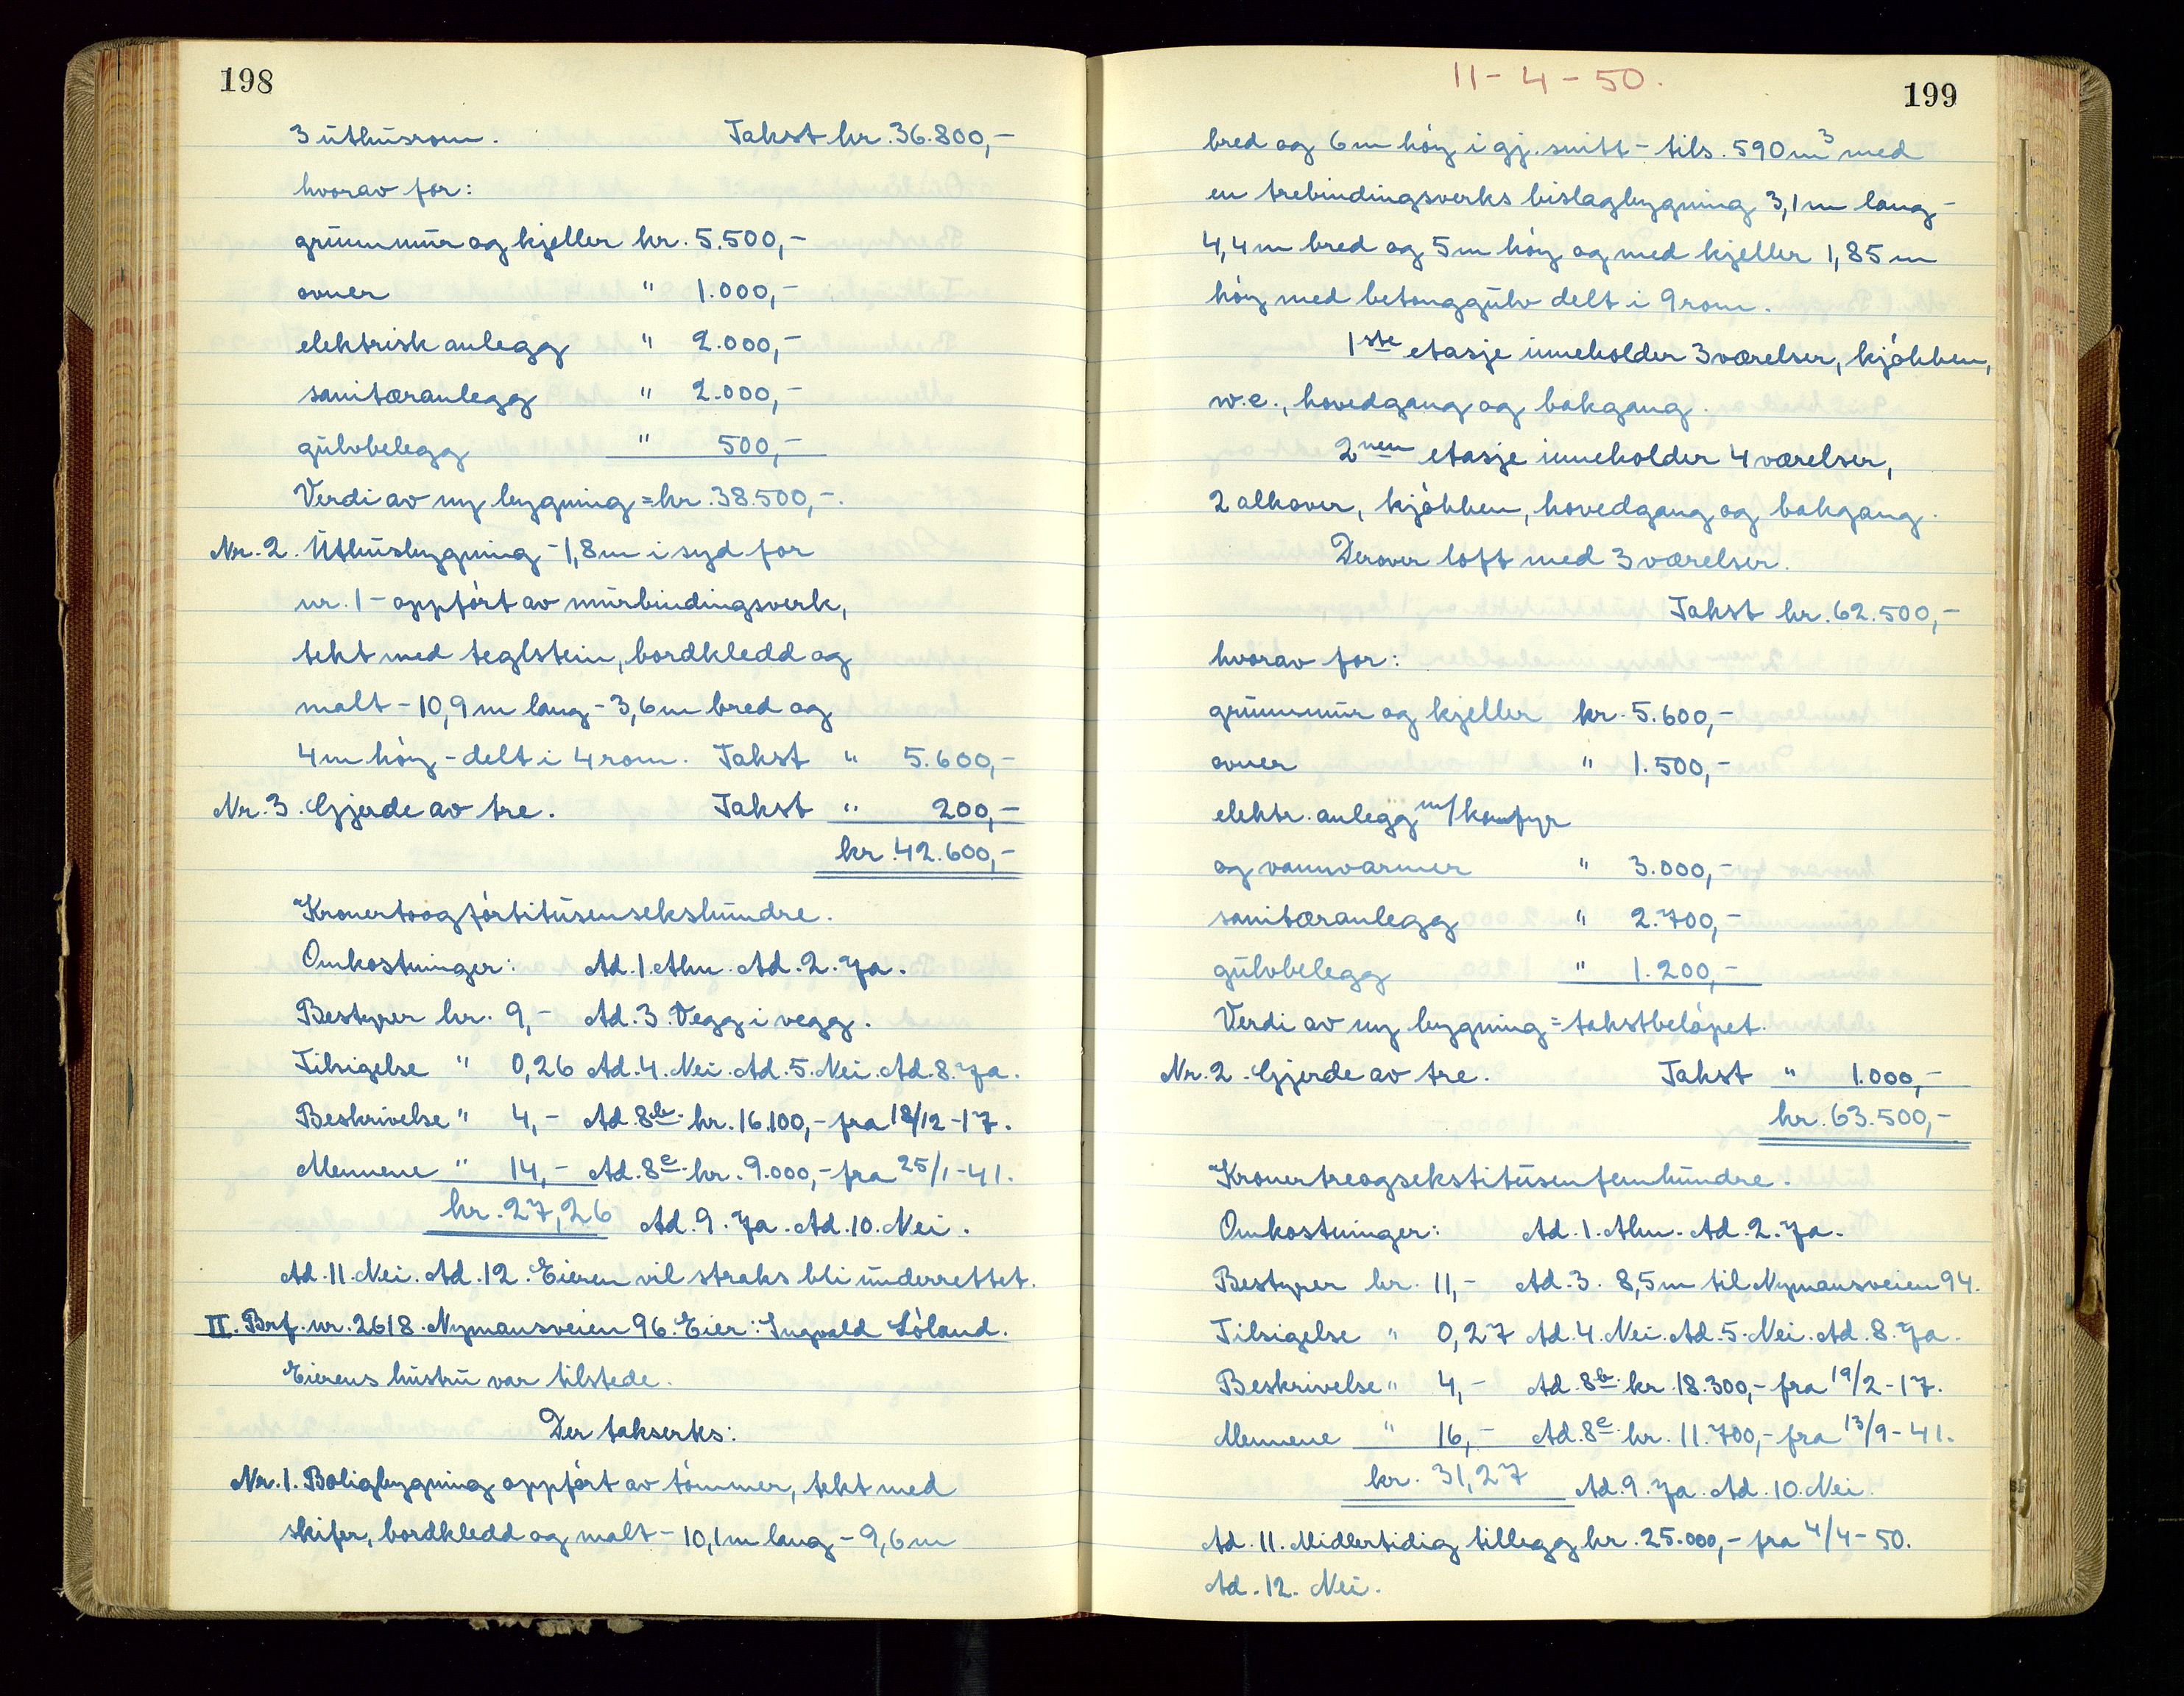 198
3 uthusrom. Takst kr. 36.800,-
hvorav for:
grunnmur og kjeller kr. 5.500,-
ovner " 1.000,-
elektrisk anlegg " 2.000,-
sanitæranlegg " 2.000,-
gulvbelegg " 500,-
Verdi av ny bygning = kr. 38.500,-.
Nr. 2. Uthusbygning - 1,8 m i syd for
nr. 1 - oppført av murbindingsverk,
tekt med teglstein, bordkledd og
malt - 10,9 m lang - 3,6 m bred og
4 m høy - delt i 4 rom. Takst " 5.600,-
Nr. 3. Gjerde av tre. Takst " 200,-
kr. 42.600,-
Kronertoogførtitusensekshundre.
Omkostninger: Ad. 1. Alm. Ad. 2. Ja.
Bestyrer kr. 9,- Ad. 3. Vegg i vegg.
Tilsigelse " 0,26 Ad. 4. Nei. Ad. 5. Nei. Ad. 8. Ja.
Beskrivelse " 4,- Ad. 8b. kr. 16.100,- fra 18/12-17.
Mennene " 14,- Ad. 8c. kr. 9.000,- fra 25/1-41.
kr. 27,26 Ad. 9. Ja. Ad. 10. Nei.
Ad. 11. Nei. Ad. 12. Eieren vil straks bli underrettet.
II. Brf. nr. 2618. Nymansveien 96. Eier: Ingvald Løland.
Eierens hustru var tilstede.
Der takserts:
Nr. 1. Boligbygning oppført av tømmer, tekt med
skifer, bordkledd og malt - 10,1 m lang - 9,6 m
11-4-50.
199
bred og 6 m høy i gj. snitt - tils. 590 m³ med
en trebindingsverks bislagbygning 3,1 m lang -
4,4 m bred og 5 m høy og med kjeller 1,85 m
høy med betonggulv delt i 9 rom.
1ste etasje inneholder 3 værelser, kjøkken,
w.c., hovedgang og bakgang.
2nen etasje inneholder 4 værelser,
2 alkover, kjøkken, hovedgang og bakgang.
Derover loft med 3 værelser.
Takst kr. 62.500,-
hvorav for:
grunnmur og kjeller kr. 5.600,-
ovner " 1.500,-
elektr. anlegg m/komfyr
og vannvarmer " 3.000,-
sanitæranlegg " 2.700,-
gulvbelegg " 1.200,-
Verdi av ny bygning = takstbeløpet.
Nr. 2. Gjerde av tre. Takst " 1.000,-
kr. 63.500,-
Kronertreogsekstitusenfemhundre.
Omkostninger: Ad. 1. Alm. Ad. 2. Ja.
Bestyrer kr. 11,- Ad. 3. 8,5 m til Nymansveien 94.
Tilsigelse " 0,27 Ad. 4. Nei. Ad. 5. Nei. Ad. 8. Ja.
Beskrivelse " 4,- Ad. 8b. kr. 18.300,- fra 19/2-17.
Mennene " 16,- Ad. 8c. kr. 11.700,- fra 13/9-41.
kr. 31,27 Ad. 9. Ja. Ad. 10. Nei.
Ad. 11. Midlertidig tillegg kr. 25.000,- fra 4/4-50.
Ad. 12. Nei.